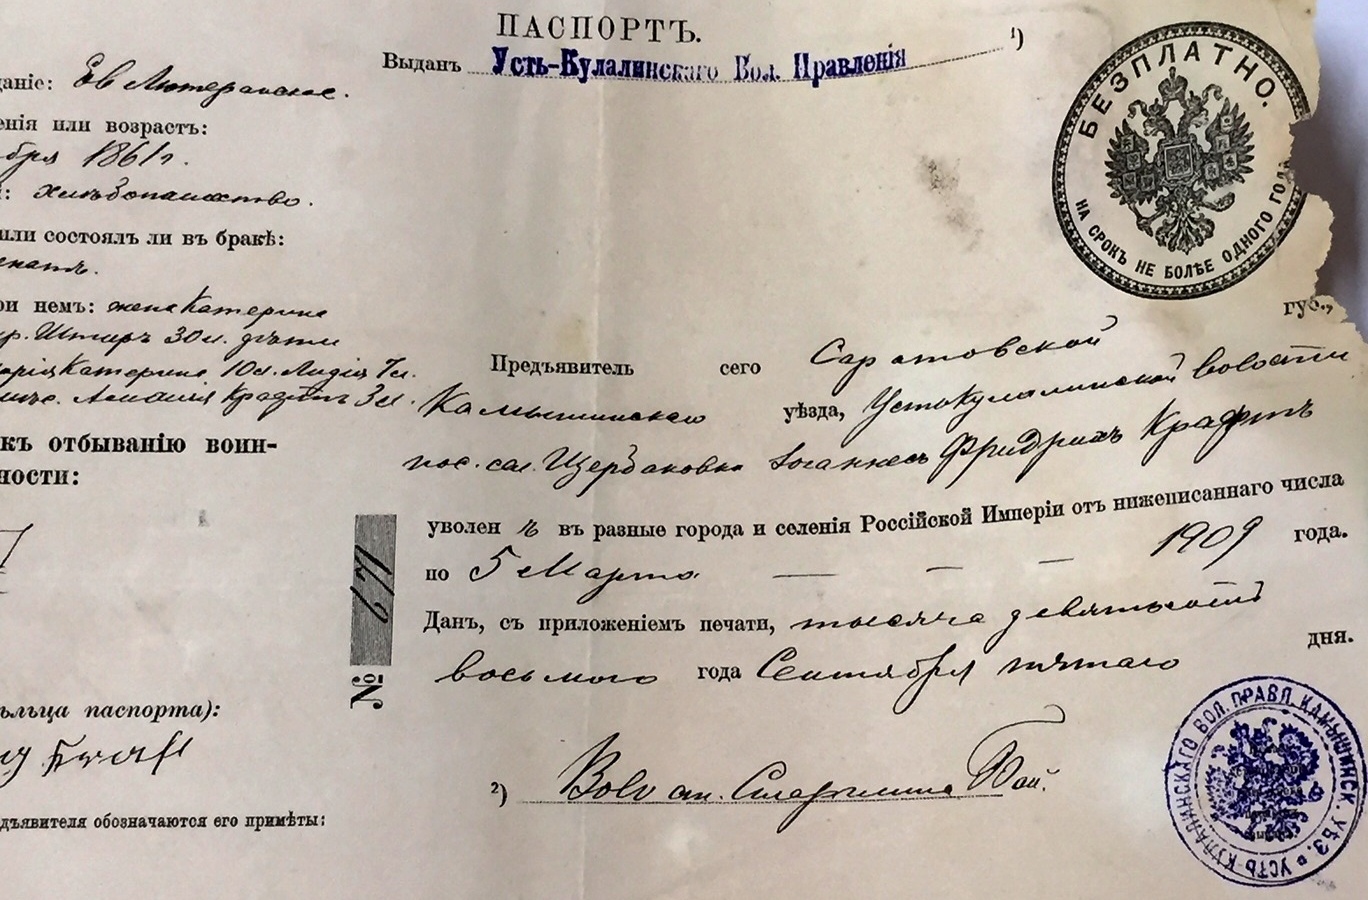 ПАСПОРТЪ.
Выданъ Усть-Кулалинскаго Вол. Правленія ¹)
БЕЗПЛАТНО.
НА СРОКЪ НЕ БОЛѢЕ ОДНОГО ГОДА
даніе: Ев Лютеранское.
енія или возрастъ:
бря 1861 г.
: хлѣбопашество.
или состоялъ ли въ бракѣ:
женатъ.
ри немъ: жена Катерина
30 л. дѣти
Марія Катерина 10 л. Лидія 7 л.
Крафтъ 3 л.
къ отбыванію воин-
ности:
льца паспорта):
Kraft
дъявителя обозначаются его примѣты:
губ.,
Предъявитель сего Саратовской
Камышинскаго уѣзда, Устькулалинской волости
пос. сел. Щербаковка Іоганнесъ Фридрихъ Крафтъ
уволенъ въ разные города и селенія Россійской Имперіи отъ нижеписаннаго числа
по 5 Марта — — — 1909 года.
Данъ, съ приложеніемъ печати, тысяча девятьсотъ
восьмого года Сентября пятаго дня.
№ 671
²) Волостн. Старшина
УСТЬ-КУЛАЛИНСКАГО ВОЛ. ПРАВЛ. КАМЫШИНСК. УѢЗ.